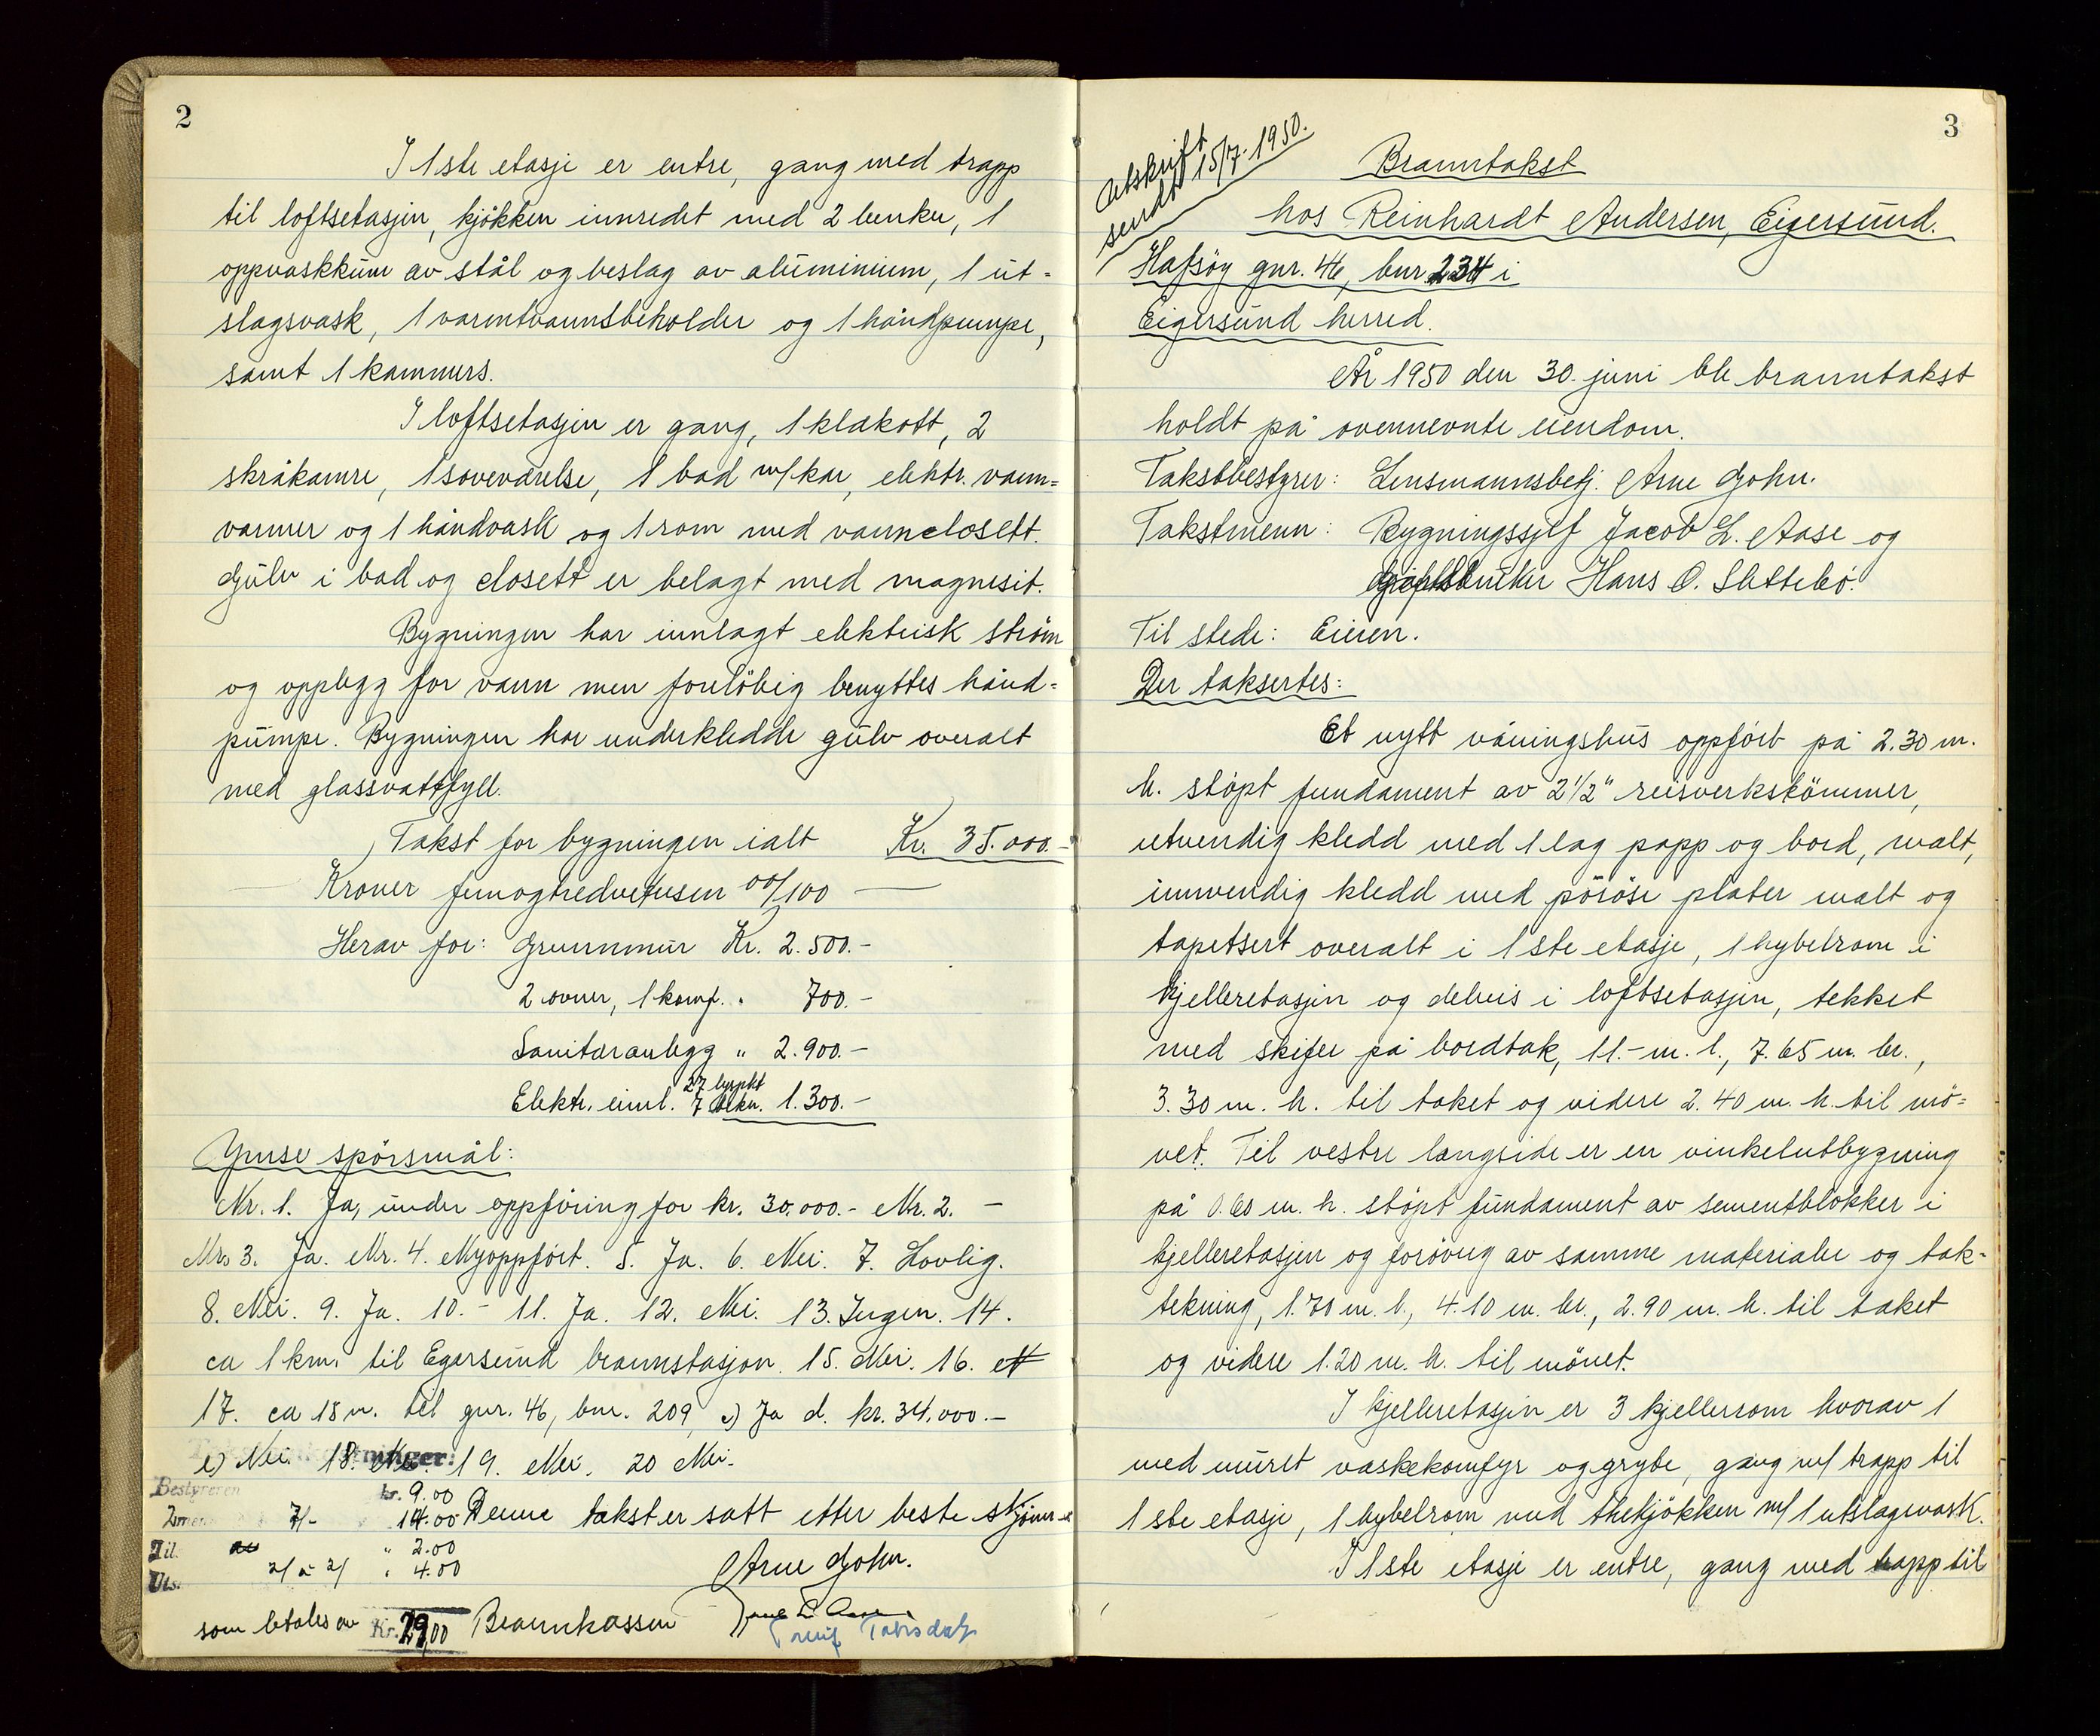 2
I 1ste etasje er entre, gang med trapp
til loftsetasjen, kjökken innredet med 2 benker, 1
oppvaskkum av stål og beslag av aluminium, 1 ut-
slagsvask, 1 varmtvannsbeholder og 1 håndpumpe,
samt 1 kammers.
I loftsetasjen er gang, 1 klækott, 2
skråkamre, 1 soveværelse, 1 bad m/kar, elektr. vann-
varmer og 1 håndvask og 1 rom med vannclosett.
Gulv i bad og closett er belagt med magnesit.
Bygningen har innlagt elektrisk ström
og opplegg for vann men forelöbig benyttes hånd-
pumpe. Bygningen har underkledde gulv overalt
med glassvattfyll.
Takst for bygningen ialt Kr. 35.000.-
Kroner femogtredvetusen 00/100
Herav for: Grunnmur Kr. 2.500.-
2 ovner, 1 komf. " 700.-
Sanitæranlegg " 2.900.-
27 lyspkt
Elektr. innl. 7 stkn. 1.300.-
Ymse spörsmål:
Nr. 1. Ja, under oppföring for kr. 30.000.- Nr. 2. -
Nr. 3. Ja. Nr. 4. Nyoppfört. 5. Ja. 6. Nei. 7. Lovlig.
8. Nei. 9. Ja. 10. - 11. Ja. 12. Nei. 13. Ingen. 14.
ca 1 km. til Egersund brannstasjon. 15. Nei. 16.
17. ca 18 m. til gnr. 46, bnr. 209, c) Ja d. kr. 34.000.-
e) Nei. 18. Nei. 19. Nei. 20 Nei.
Bestyreren kr. 9.00
2 menn 7/- 14.00 Denne takst er satt etter beste skjönn
Til. " 2.00
Uts. 2/ a 2/ " 4.00 Arne Gohn.
som betales av Kr. 29,00 Brannkassen
3
Utskrift
sendt 15/7. 1950.
Branntakst
hos Reinhardt Andersen, Eigersund.
Hafsöy gnr. 46, bnr 234 i
Eigersund herred.
År 1950 den 30. juni ble branntakst
holdt på ovennevnte eiendom.
Takstbestyrer: Lensmannsbetj. Arne Gohn.
Takstmenn: Bygningssjef Jacob L. Aase og
Hans O. Slettebö.
Til stede: Eieren.
Der taksertes:
Et nytt våningshus oppfört på 2.30 m.
h. stöpt fundament av 2 1/2" reisverkstömmer,
utvendig kledd med 1 lag papp og bord, malt,
innvendig kledd med pöröse plater malt og
tapetsert overalt i 1ste etasje, 1 hybelrom i
kjelleretasjen og delvis i loftsetasjen, tekket
med skifer på bordtak, 11.- m. l., 7.65 m. br.,
3.30 m. h. til taket og videre 2.40 m. h. til mö-
net. Til vestre langside er en vinkelutbygning
på 0.60 m. h. stöpt fundament av sementblokker i
kjelleretasjen og forövrig av samme materialer og tak-
tekning, 1.70 m. l., 4.10 m. br., 2.90 m. h. til taket
og videre 1.20 m. h. til mönet.
I kjelleretasjen er 3 kjellerrom hvorav 1
med muret vaskekomfyr og gryte, gang m/ trapp til
1ste etasje, 1 hybelrom med thekjökken m/ 1 utslagsvask.
I 1ste etasje er entre, gang med trapp til